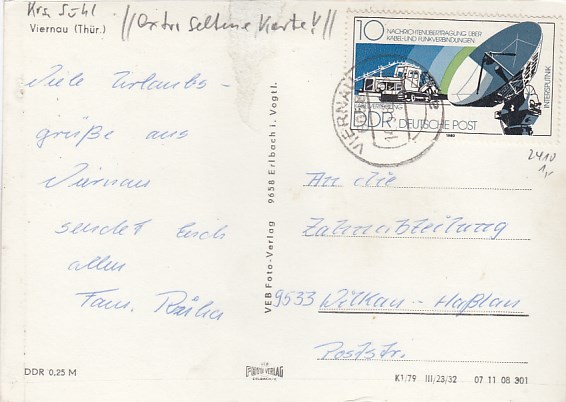 Krs. Suhl
//Extra seltene Karte!//
Viernau (Thür.)
10
NACHRICHTENÜBERTRAGUNG ÜBER
KABEL-UND FUNKVERBINDUNGEN
INTERSPUTNIK
DDR DEUTSCHE POST
1980
VIERNAU
2490
1,-
Viele Urlaubs-
grüße aus
Viernau
sendet Euch
allen
Fam.
VEB Foto-Verlag 9658 Erlbach i. Vogtl.
An die
Zahnabteilung
9533 Wilkau-Haßlau
Poststr.
DDR 0,25 M
FOTO VERLAG
K1/79 III/23/32 07 11 08 301